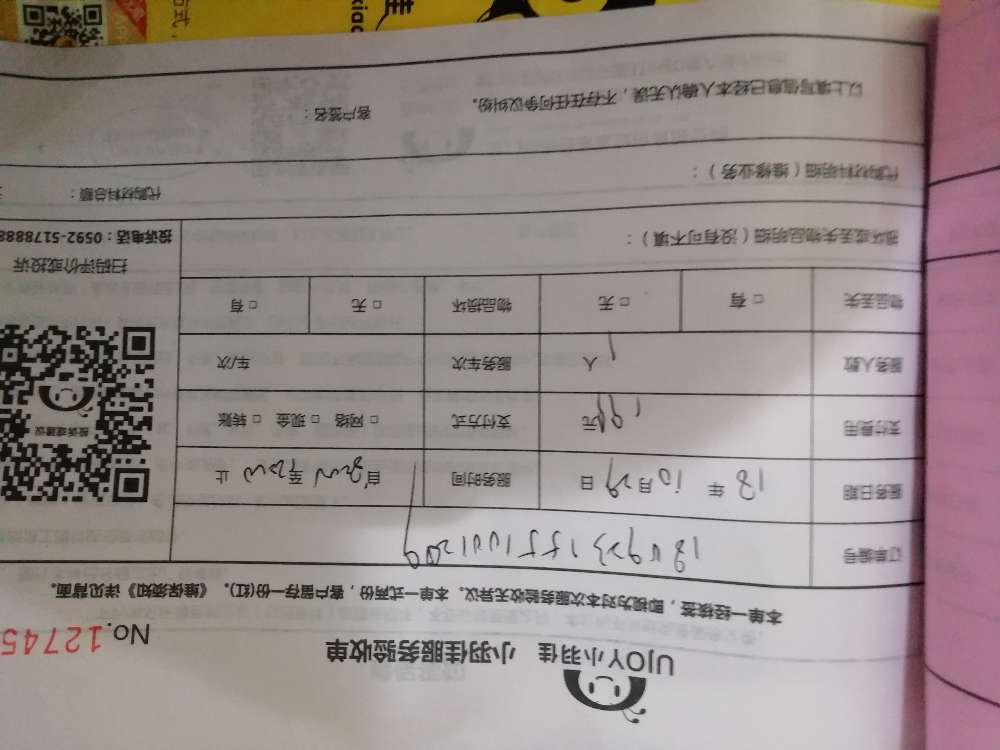 UJOY小羽佳 小羽佳服务验收单
No. 12745
本单一经接签，即视为对本次服务验收无异议。本单一式两份，客户留存一份(红)。《维保须知》详见背面。
订单编号
服务日期 18年10月29日 服务时间 自 至 止
支付费用 元 支付方式 □ 网络 □ 现金 □ 转账
服务人数 1人 服务车次 车/次
物品丢失 □ 有 □ 无 物品损坏 □ 无 □ 有
投诉或建议
扫码评价或投诉
投诉电话：0592-5178888
损坏或丢失物品明细（没有可不填）：
代购材料明细（维修业务）： 代购材料总额：
以上填写信息已经本人确认无误，不存在任何争议纠纷。 客户签名：